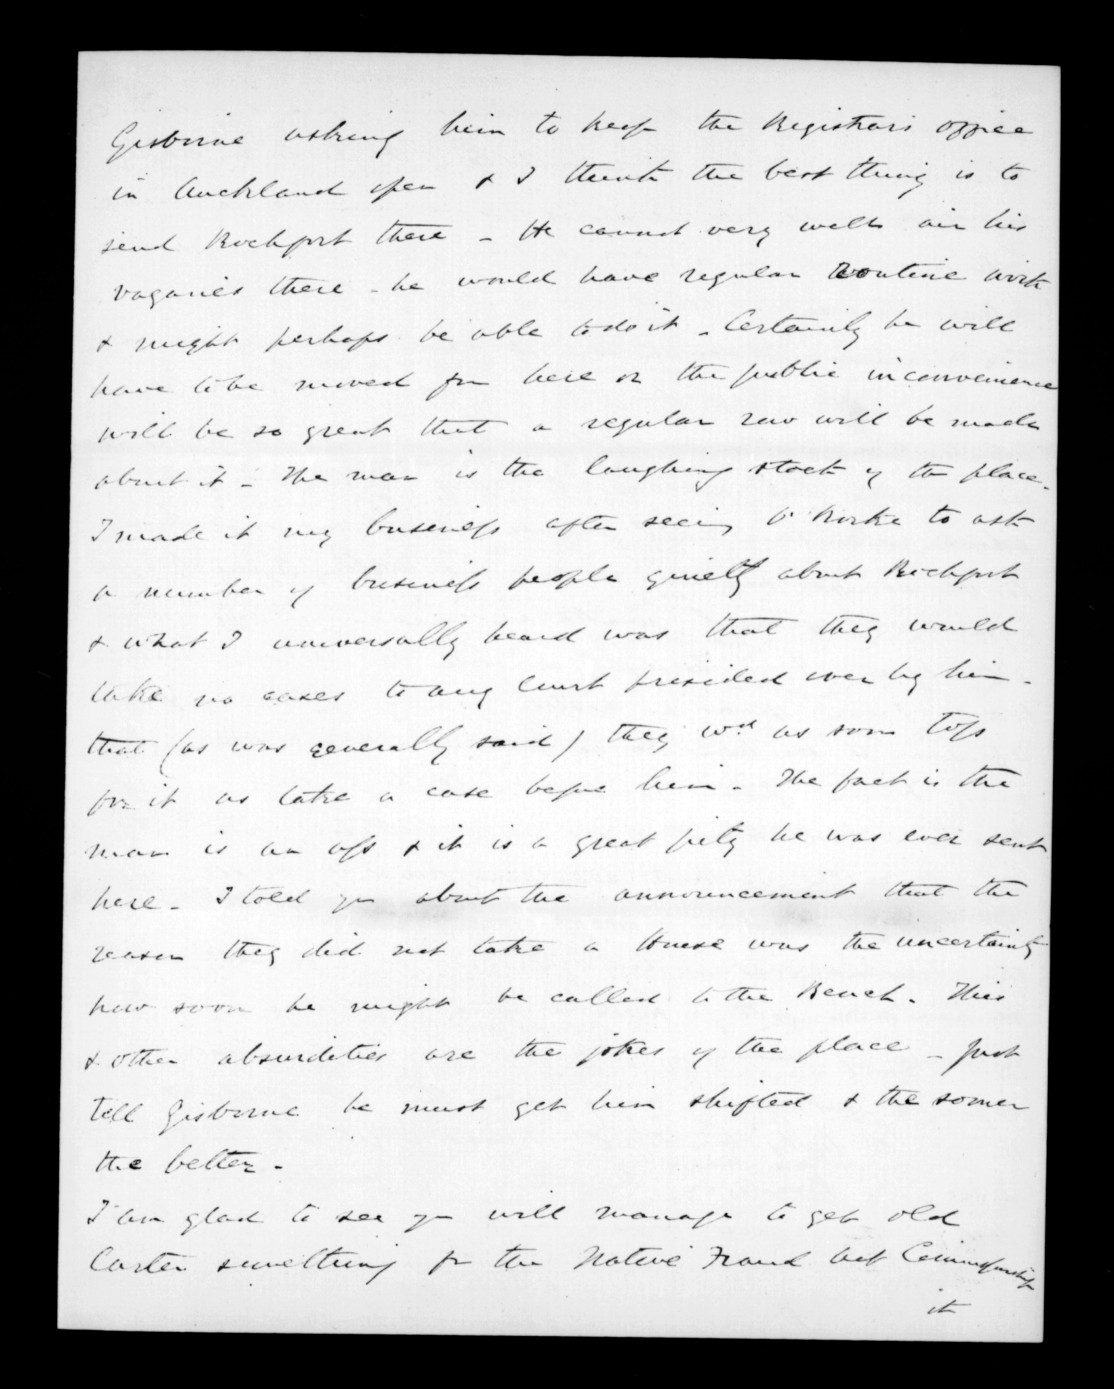 Gisborne asking him to keep the Registrars office
in Auckland open & I think the best thing is to
send Rochfort there - He cannot very well air his
vagaries there - he would have regular Routine work
& might perhaps be able to do it - Certainly he will
have to be moved from here or the public inconvenience
will be so great that a regular row will be made
about it - The man is the laughing stock of the place.
I made it my business after seeing O'Rorke to ask
a number of business people quietly about Rochfort
& what I universally heard was that they would
take no cases to any Court presided over by him -
that (as was generally said) they wd as soon toss
for it as take a case before him - The fact is the
man is an ass & it is a great pity he was ever sent
here - I told you about the announcement that the
reason they did not take a House was the uncertainty
how soon he might be called to the Bench. This
& other absurdities are the jokes of the place - Just
tell Gisborne he must get him shifted & the sooner
the better -
I am glad to see you will manage to get old
Carter something for the Native Fraud Act Commissionship
it